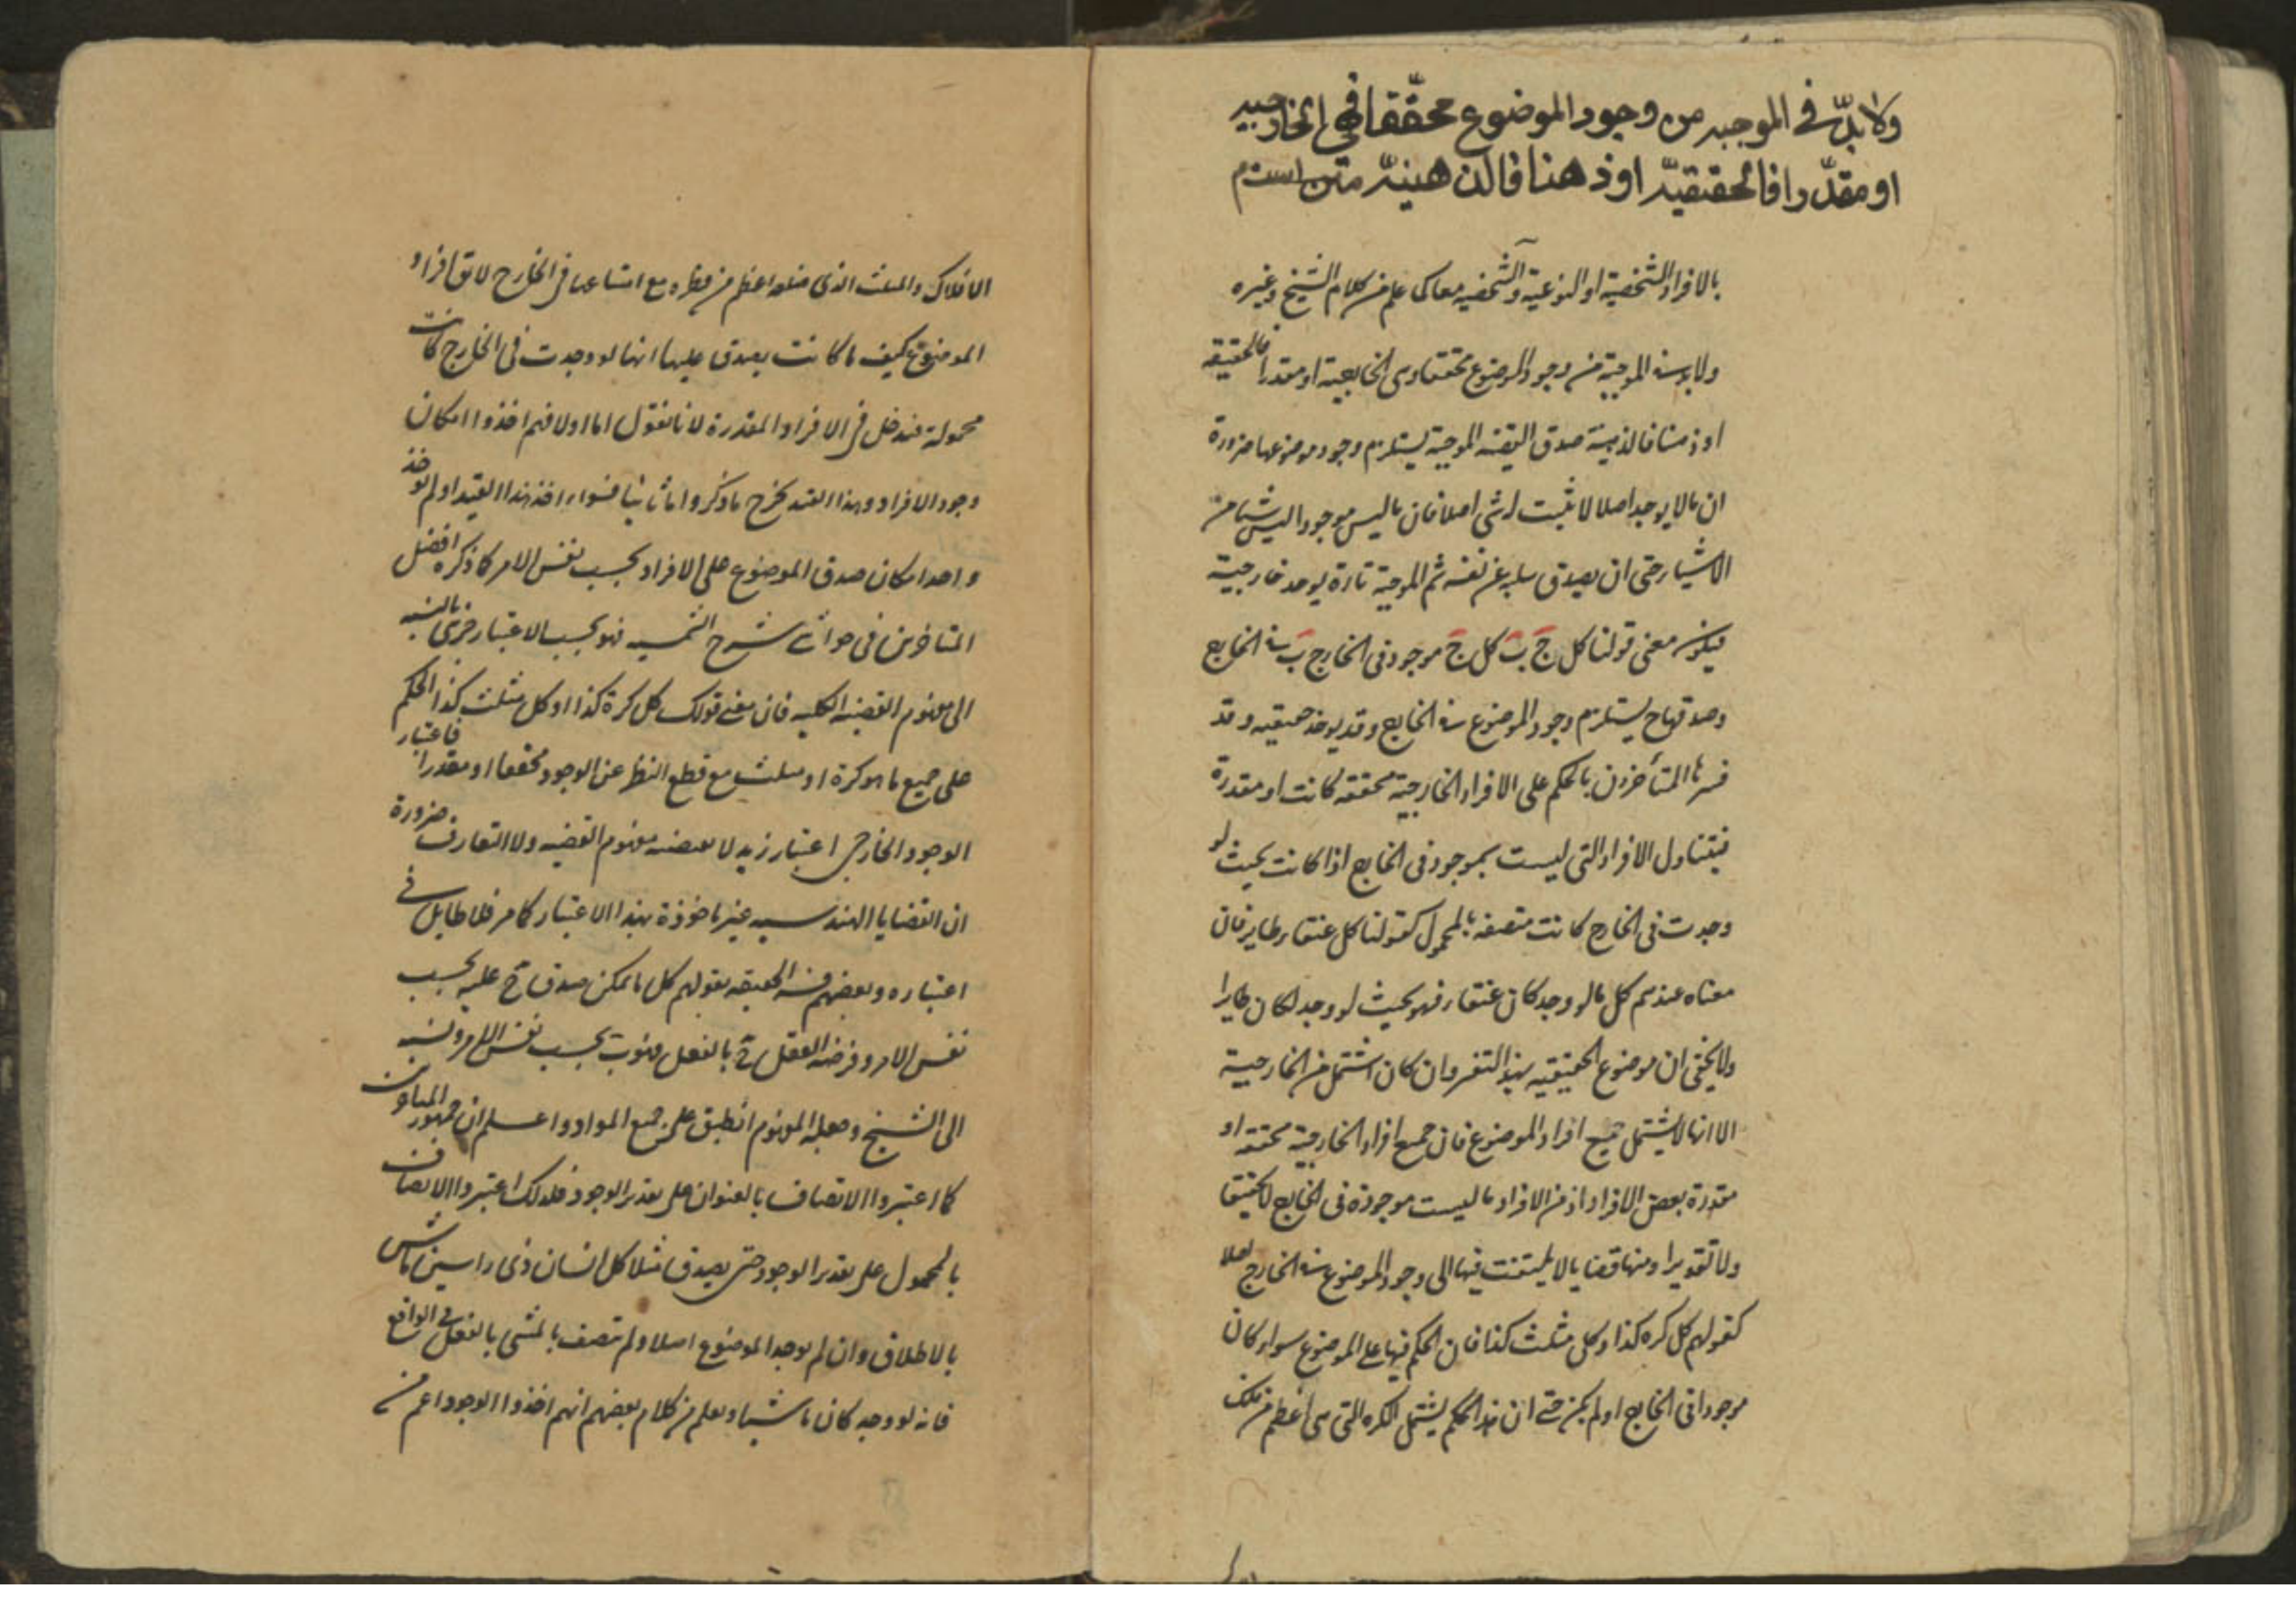 ولا بدّ في الموجبه من وجود الموضوع محقّقا فهي الخارجيه
او مقدّرا فالحقيقيّه او ذهنا فالذهنيّه متن است
بالافراد الشخصية او النوعية والشخصيه معا كما علم من كلام الشيخ وغيره
ولا بد في الموجبة من وجود الموضوع محققا وهي الخارجية او مقدرا فالحقيقيه
او ذهنا فالذهنية صدق القضيه الموجبة يستلزم وجود موضوعها ضرورة
ان ما لا يوجد اصلا لا يثبت له شئ اصلا فان ما ليس موجودا ليس شيئا من
الاشياء حتى ان يصدق سلبه عن نفسه ثم الموجبة تارة يوخذ خارجية
فيكون معنى قولنا كل ج ب كل ج موجود في الخارج ب في الخارج
وصدقها ح يستلزم وجود الموضوع في الخارج وقد يوخذ حقيقيه وقد
فسرها المتأخرون بالحكم على الافراد الخارجية محققه كانت او مقدرة
فيتناول الافراد التي ليست بموجود في الخارج اذا كانت بحيث لو
وجدت في الخارج كانت متصفه بالمحمول كقولنا كل عنقاء طاير فان
معناه عندهم كل ما لو وجد كان عنقاء فهو بحيث لو وجد لكان طايرا
ولا يخفى ان موضوع الحقيقيه بهذا التفسير وان كان اشتمل من الخارجية
الا انها لا يشتمل جميع افراد الموضوع فان جميع افراد الخارجية محققه او
مقدرة بعض الافراد اذ من الافراد ما ليست موجودة في الخارج لا تحقيقا
ولا تقديرا ومنها قضايا لا يلتفت فيها الى وجود الموضوع في الخارج اصلا
كقولهم كل كره كذا وكل مثلث كذا فان الحكم فيها على الموضوع سواء كان
موجودا في الخارج او لم يكن حتى ان هذا الحكم يشتمل الكره التي هي اعظم من فلك
الافلاك والمثلث الذي ضلعه اعظم من قطره مع امتناعها في الخارج لا يق افراد
الموضوع كيف ما كانت يصدق عليها انها لو وجدت في الخارج كانت
محمولة فتدخل في الافراد المقدرة لانا نقول اما اولا فهم اخذوا امكان
وجود الافراد وبهذا القيد يخرج ما ذكروا اما ثانيا فسواء اخذ هذا القيد او لم يوخذ
واحد امكان صدق الموضوع على الافراد بحسب نفس الامر كما ذكره افضل
المتاخرين في حواشى شرح الشمسيه فهو بحسب الاعتبار جزئى بالنسبه
الى مفهوم القضيه الكليه فان معنى قولك كل كرة كذا او كل مثلث كذا الحكم
على جميع ما هو كرة او مثلث مع قطع النظر عن الوجود محققا او مقدرا فاعتبار
الوجود الخارجى اعتبار زيد لا مفهوم القضيه ولا التعارف ضرورة
ان القضايا الهندسيه غير ماخوذة بهذا الاعتبار كما مر فلا طايل فى
اعتباره وبعضهم فسر الحقيقيه بقولهم كل ما يمكن صدق ج عليه بحسب
نفس الامر وفرضه العقل ج بالفعل فهو ب بحسب نفس الامر ونسبه
الى الشيخ وجعله المفهوم انطبق على جميع المواد واعلم ان جمهور المتاخرين
كما اعتبروا الاتصاف بالعنوان على تقدير الوجود فكذلك اعتبروا الاتصاف
بالمحمول على تقدير الوجود حتى يصدق مثلا كل انسان ذى راسين ماش
بالاطلاق وان لم يوجد الموضوع اصلا ولم يتصف بالمشى بالفعل في الواقع
فانه لو وجد كان ماشيا ويعلم من كلام بعضهم انهم اخذوا الوجود اعم من